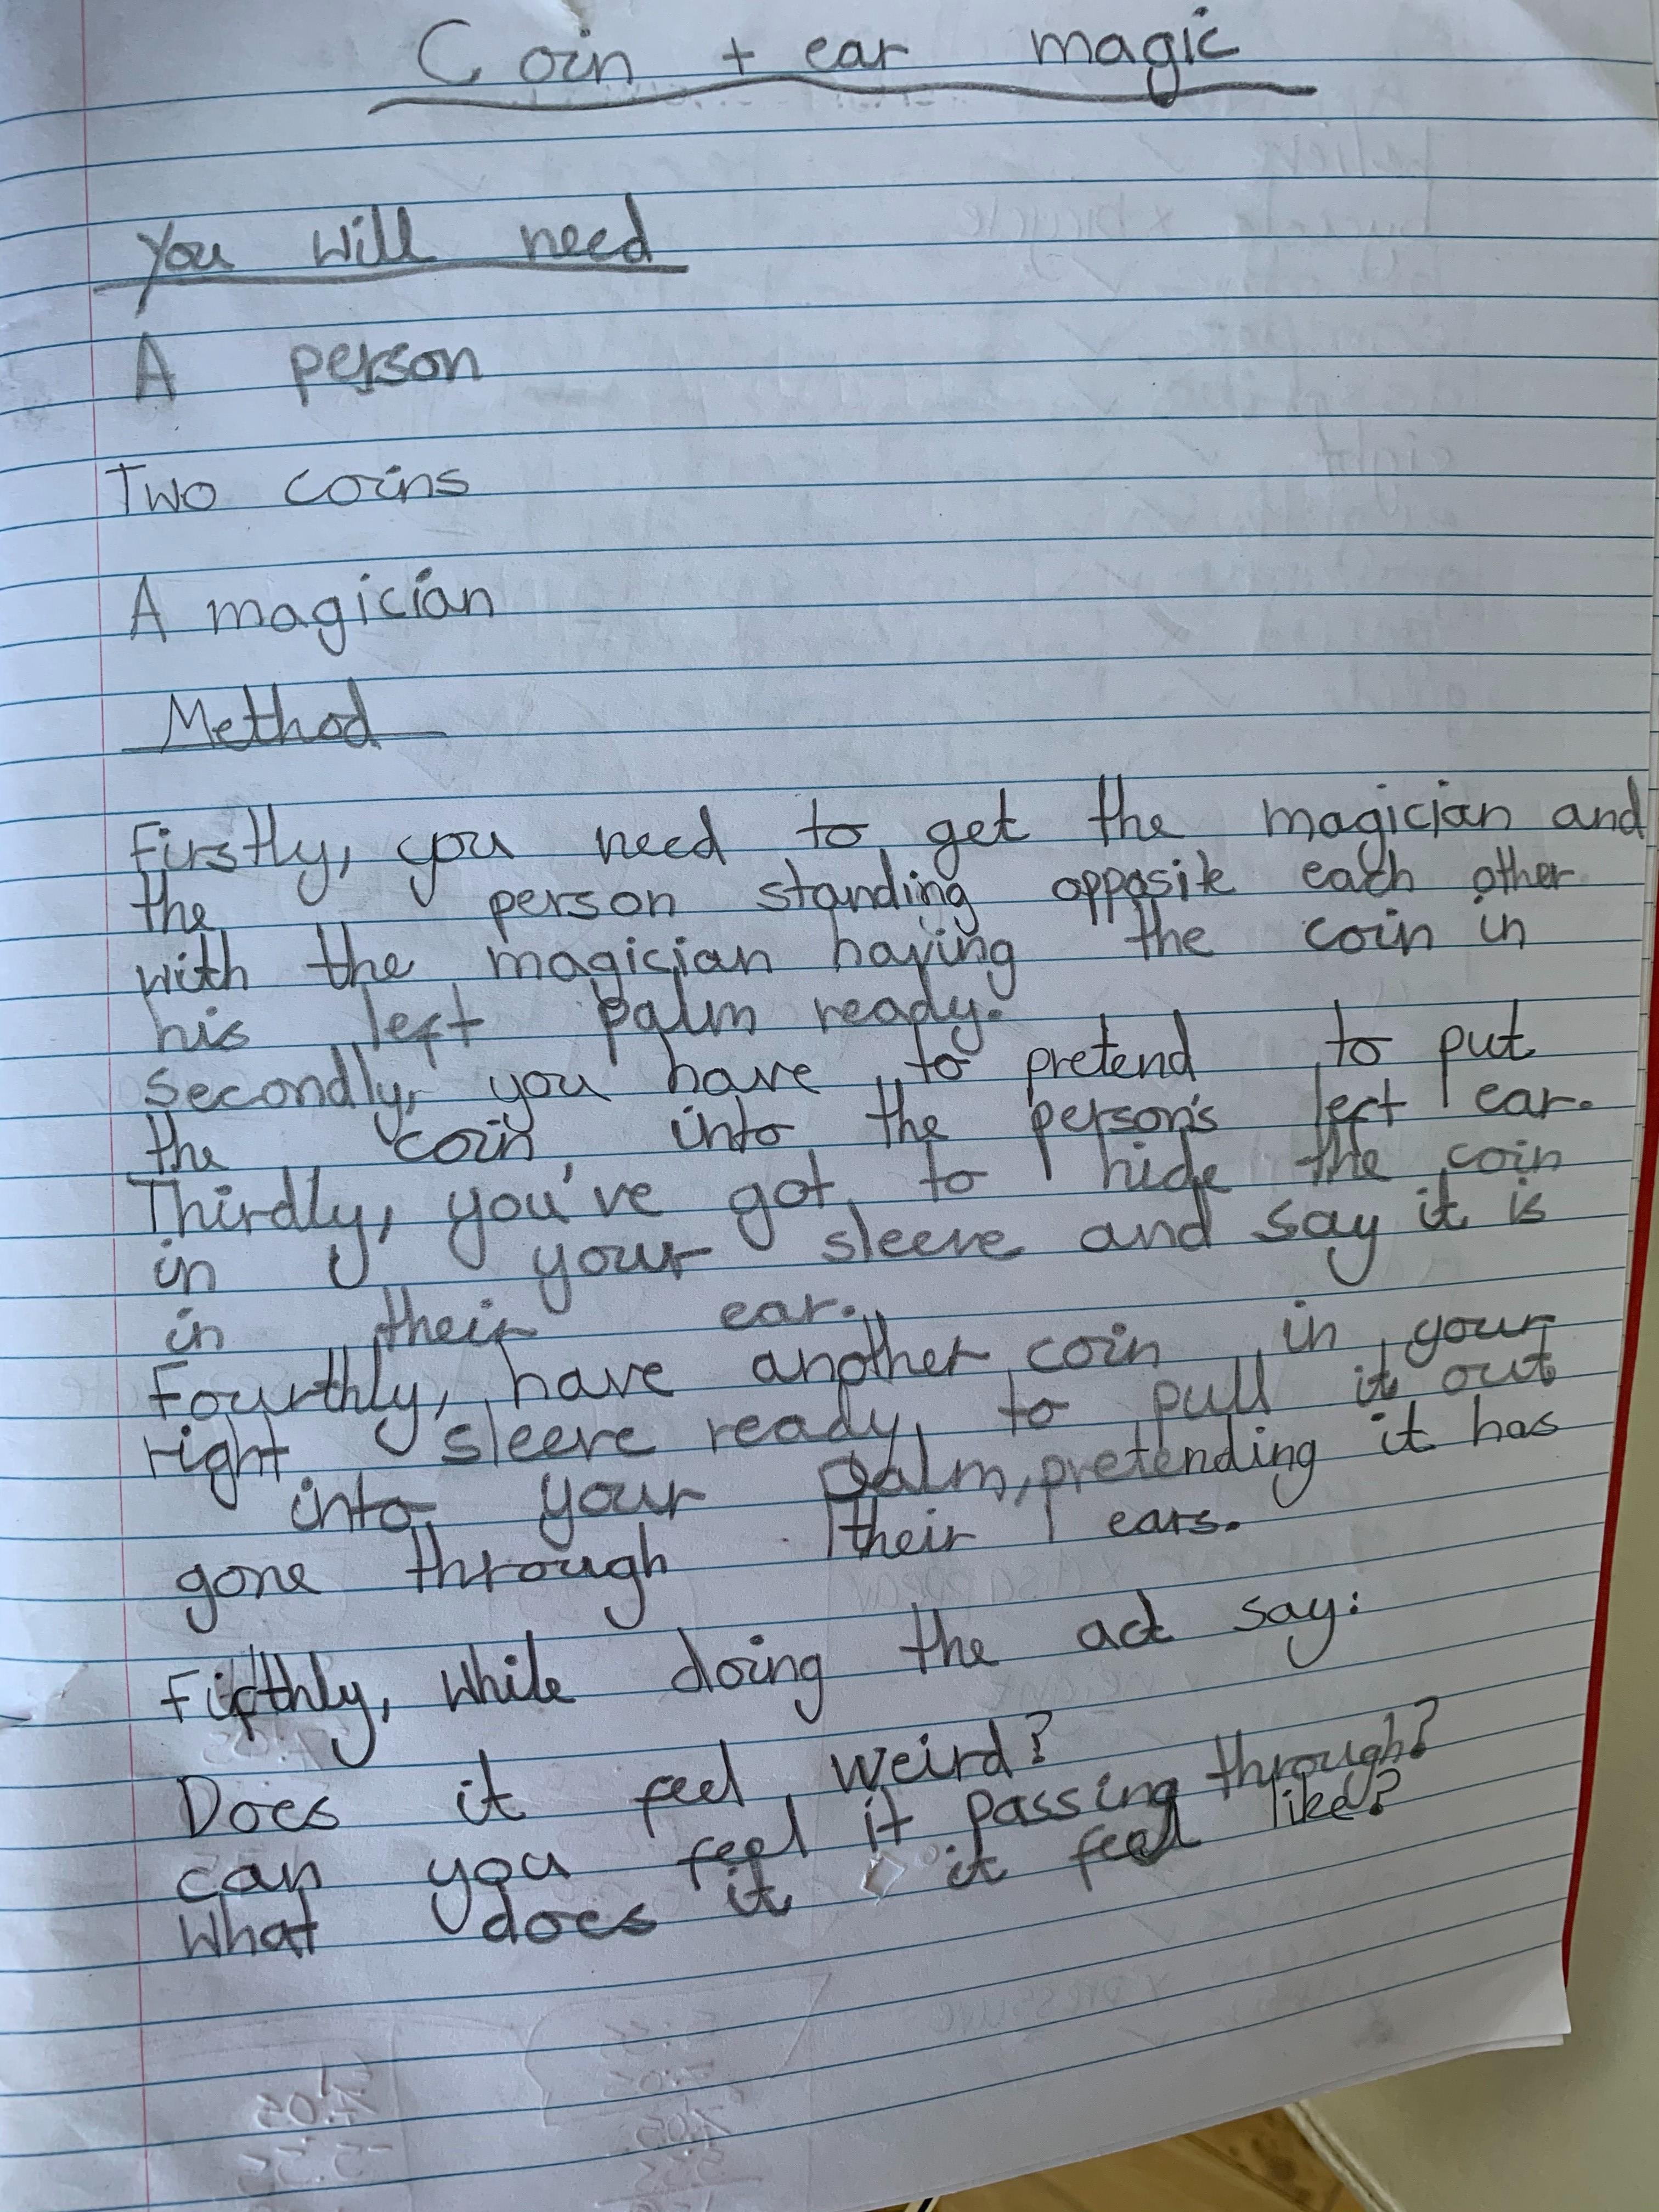 Coin + ear magic
You will need
A person
Two coins
A magician
Method
Firstly, you need to get the magician and
the person standing opposite each other
with the magician having the coin in
his left palm ready.
Secondly, you have to pretend to put
the coin into the person's left ear.
Thirdly, you've got to hide the coin
in your sleeve and say it is
in their ear.
Fourthly, have another coin in your
right sleeve ready to pull it out
into your palm, pretending it has
gone through their ears.
Fifthly, while doing the act say:
Does it feel weird?
can you feel it passing through?
What does it it feel like?